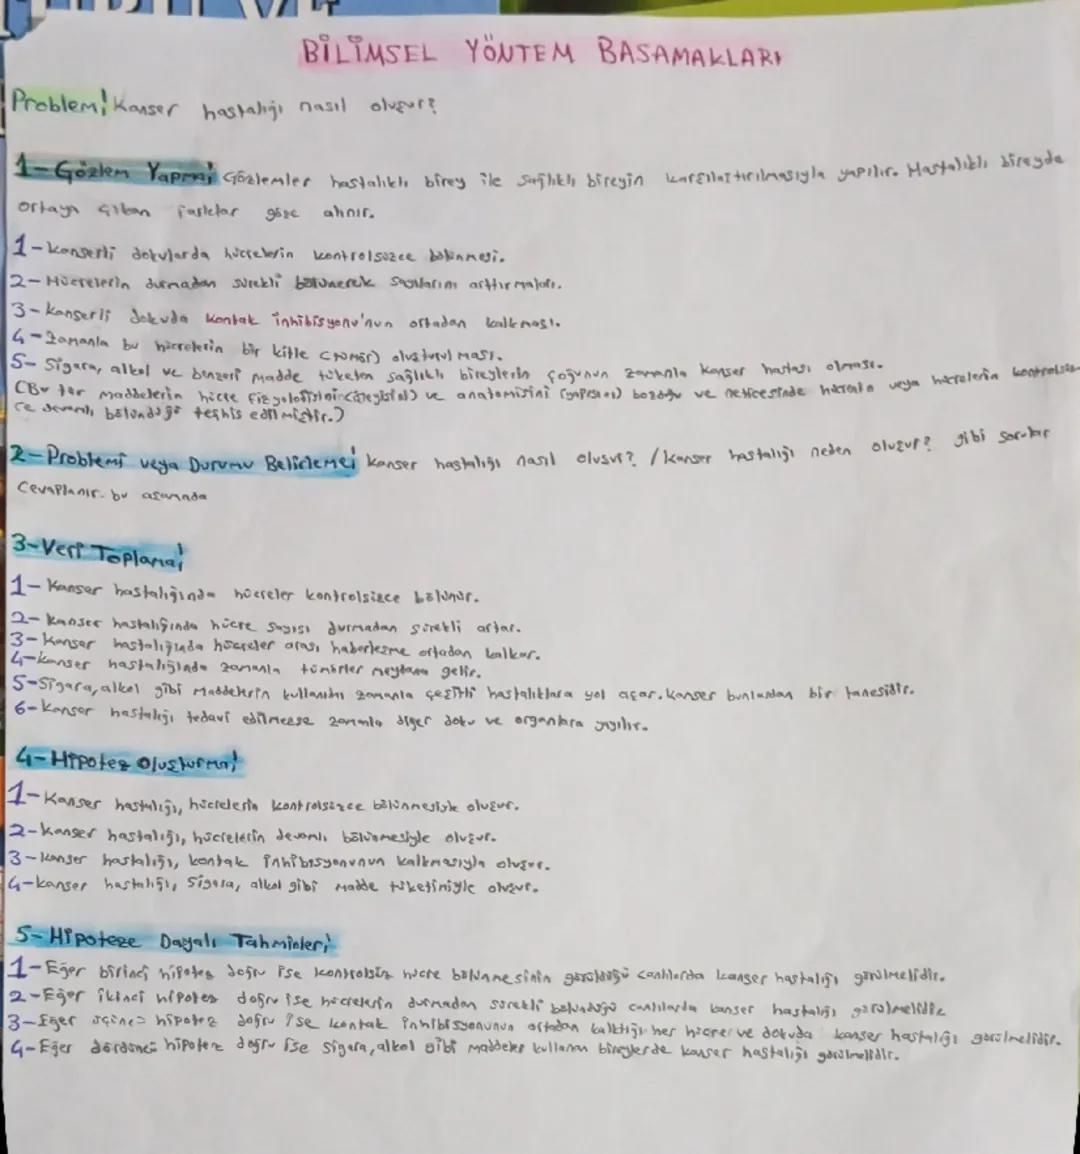 BİLİMSEL YÖNTEM BASAMAKLARI
Problem; Kanser hastalığı nasıl oluşur?
1-Gözlem Yapma; Gözlemler hastalıklı birey ile sağlıklı bireyin karşılaştırılmasıyla yapılır. Hastalıklı bireyde
ortaya çıkan farklar göze alınır.
1-Kanserli dokularda hücrelerin kontrolsüzce bölünmesi.
2-Hücrelerin durmadan sürekli bölünerek sayılarını arttırmaları.
3-Kanserli dokuda kontak inhibisyonu'nun ortadan kalkması.
4-Zamanla bu hücrelerin bir kitle (tümör) oluşturulması.
5-Sigara, alkol ve benzeri madde tüketen sağlıklı bireylerin çoğunun zamanla kanser hastası olması.
(Bu tür maddelerin hücre fizyolojisini (işleyişini) ve anatomisini (yapısını) bozduğu ve neticesinde hücrenin veya hücrelerin kontrolsüz
ce devamlı bölündüğü teşhis edilmiştir.)
2-Problemi veya Durumu Belirleme; Kanser hastalığı nasıl oluşur? / Kanser hastalığı neden oluşur? gibi sorular
Cevaplanır. bu aşamada
3-Veri Toplama;
1-Kanser hastalığında hücreler kontrolsüzce bölünür.
2-Kanser hastalığında hücre sayısı durmadan sürekli artar.
3-Kanser hastalığında hücreler arası haberleşme ortadan kalkar.
4-Kanser hastalığında zamanla tümörler meydana gelir.
5-Sigara, alkol gibi maddelerin kullanımı zamanla çeşitli hastalıklara yol açar. Kanser bunlardan bir tanesidir.
6-Kanser hastalığı tedavi edilmezse zamanla diğer doku ve organlara yayılır.
4-Hipotez Oluşturma;
1-Kanser hastalığı, hücrelerin kontrolsüzce bölünmesiyle oluşur.
2-Kanser hastalığı, hücrelerin devamlı bölünmesiyle oluşur.
3-Kanser hastalığı, kontak inhibisyonunun kalkmasıyla oluşur.
4-Kanser hastalığı, sigara, alkol gibi madde tüketimiyle oluşur.
5-Hipoteze Dayalı Tahminler;
1-Eğer birinci hipotez doğru ise kontrolsüz hücre bölünmesinin görüldüğü canlılarda kanser hastalığı görülmelidir.
2-Eğer ikinci hipotez doğru ise hücrelerin durmadan sürekli bölündüğü canlılarda kanser hastalığı görülmelidir
3-Eğer üçüncü hipotez doğru ise kontak inhibisyonunun ortadan kalktığı her hücre ve dokuda kanser hastalığı görülmelidir.
4-Eğer dördüncü hipotez doğru ise sigara, alkol gibi maddeler kullanan bireylerde kanser hastalığı görülmelidir.